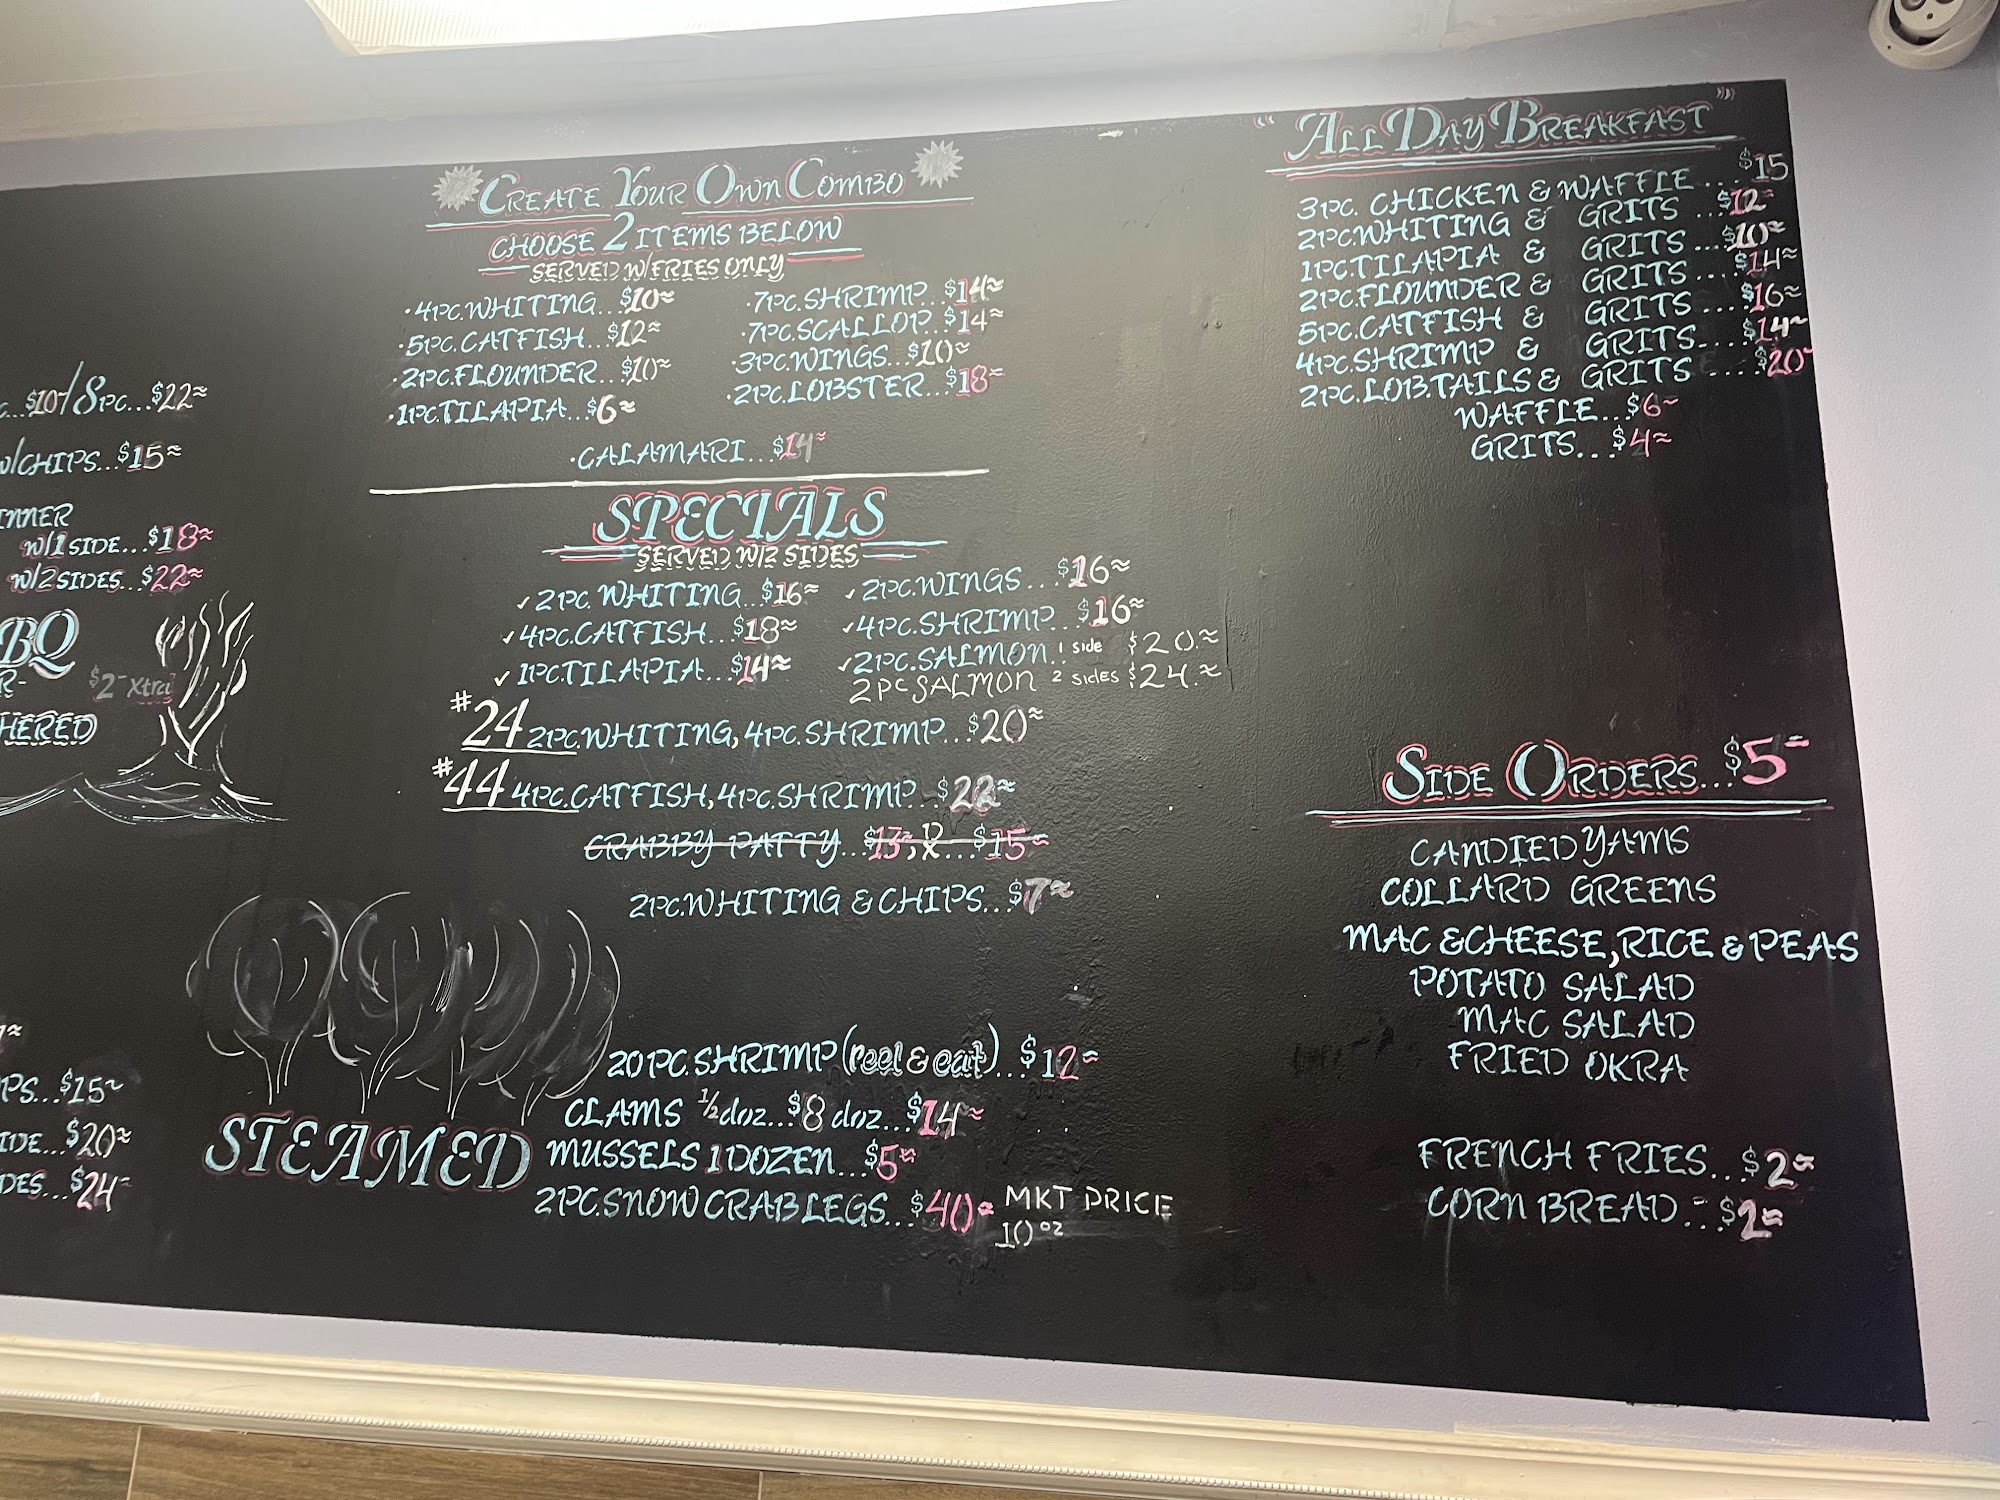 ...$10/8PC...$22
W/CHIPS...$15
INNER
W/1 SIDE...$18
W/2 SIDES...$22
BQ
R-
$2- Xtra
HERED
PS...$15
IDE...$20
DES...$24
CREATE YOUR OWN COMBO
CHOOSE 2 ITEMS BELOW
SERVED W/FRIES ONLY
•4PC.WHITING...$10
•5PC.CATFISH...$12
•2PC.FLOUNDER...$10
•1PC.TILAPIA...$6
•7PC.SHRIMP...$14
•7PC.SCALLOP...$14
•3PC.WINGS...$10
•2PC.LOBSTER...$18
•CALAMARI...$14
SPECIALS
SERVED W/2 SIDES
✓2PC. WHITING...$16
✓4PC.CATFISH...$18
✓1PC.TILAPIA...$14
✓2PC.WINGS...$16
✓4PC.SHRIMP...$16
✓2PC.SALMON.. 1 side $20.
2PC SALMON 2 sides $24.
#24 2PC.WHITING, 4PC.SHRIMP...$20
#44 4PC.CATFISH, 4PC.SHRIMP...$22
CRABBY PATTY...$13, ...$15
2PC.WHITING & CHIPS...$7
STEAMED
20PC.SHRIMP (peel & eat)...$12
CLAMS ½ doz...$8 doz...$14
MUSSELS 1 DOZEN...$5
2PC.SNOW CRAB LEGS...$40 MKT PRICE
10 oz
"ALL DAY BREAKFAST"
3PC. CHICKEN & WAFFLE...$15
2PC.WHITING & GRITS...$12
1PC.TILAPIA & GRITS...$10
2PC.FLOUNDER & GRITS...$14
5PC.CATFISH & GRITS....$16
4PC.SHRIMP & GRITS....$14
2PC.LOB.TAILS & GRITS....$20
WAFFLE...$6
GRITS...$4
SIDE ORDERS...$5
CANDIED YAMS
COLLARD GREENS
MAC & CHEESE, RICE & PEAS
POTATO SALAD
MAC SALAD
FRIED OKRA
FRENCH FRIES...$2
CORN BREAD...$2